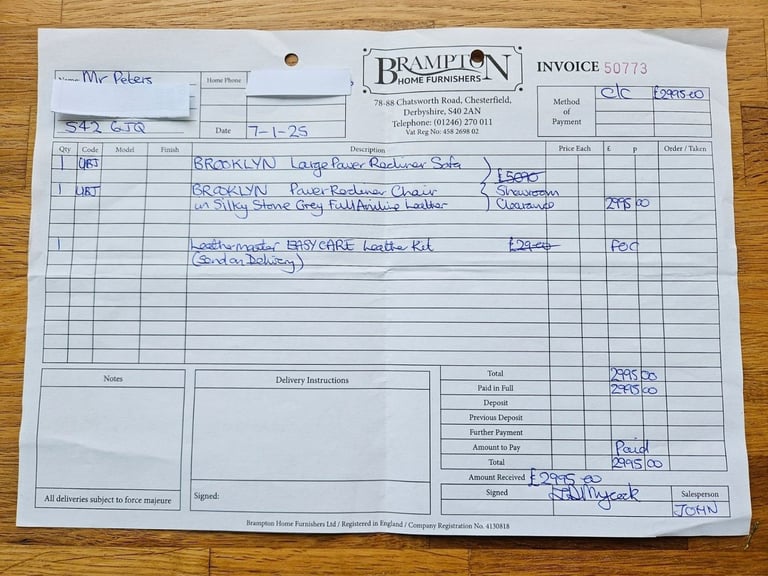 BRAMPTON
HOME FURNISHERS
78-88 Chatsworth Road, Chesterfield,
Derbyshire, S40 2AN
Telephone: (01246) 270 011
Vat Reg No: 458 2698 02
INVOICE 50773
Name Mr Peters
S42 6JQ
Home Phone
Date 7-1-25
Method of Payment C/C £2995.00
Qty Code Model Finish Description Price Each £ p Order / Taken
1 UBJ BROOKLYN Large Power Recliner Sofa £5090
1 UBJ BROOKLYN Power Recliner Chair Showroom
in Silky Stone Grey Full Aniline Leather Clearance 2995 00
1 Leathermaster EASYCARE Leather Kit £29.00 FOC
(Send on Delivery)
Notes
All deliveries subject to force majeure
Delivery Instructions
Signed:
Total 2995 00
Paid in Full 2995 00
Deposit
Previous Deposit
Further Payment
Amount to Pay Paid
Total 2995 00
Amount Received £2995 00
Signed Mycock
Salesperson
JOHN
Brampton Home Furnishers Ltd / Registered in England / Company Registration No. 4130818